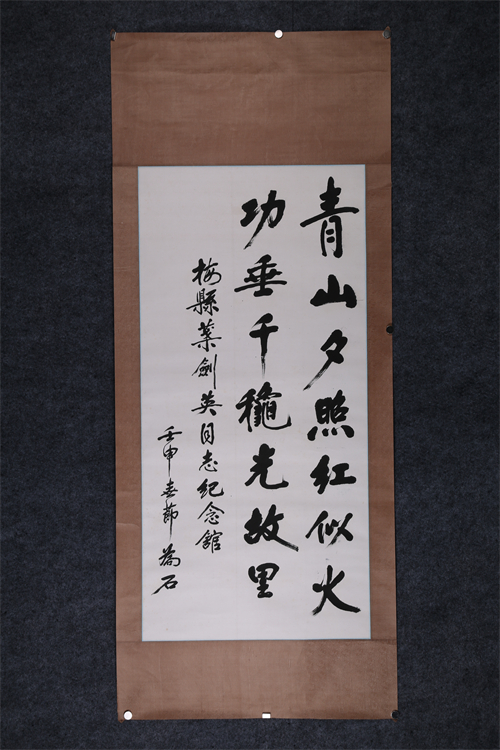 青山夕照红似火
功垂千龝光故里
梅縣葉劍英同志纪念館
壬申春節 为石